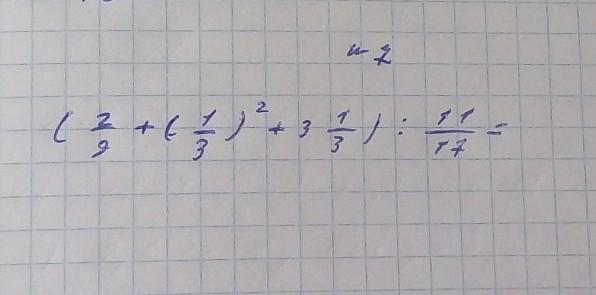 (2/9 + (1/3)² + 3 1/3) : 11/17 =